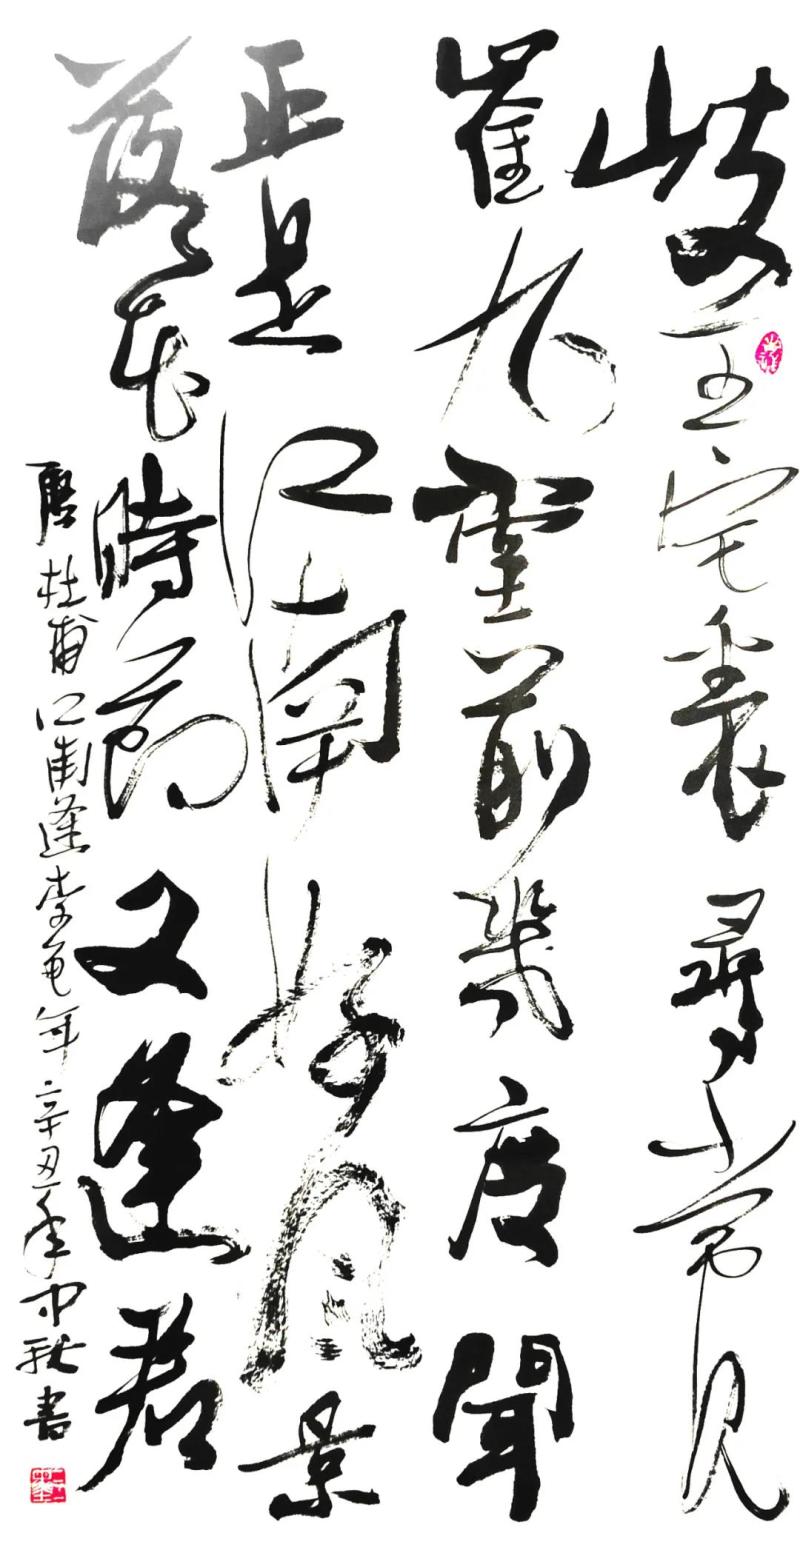 岐王宅裏尋常見
崔九堂前幾度聞
正是江南好風景
落花時節又逢君
唐杜甫江南逢李龜年辛丑年中秋書